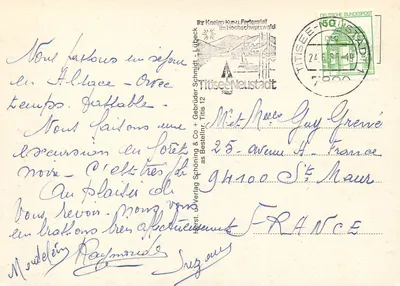 Nous faisons un séjour
en Alsace - avec
temps passable -
Nous faisons une
excursion en forêt
noire - C'est très
Au plaisir de
vous revoir - nous vous
embrassons bien affectueusement
Madeleine
Raymonde
Suzanne
Schöning & Co + Gebrüder Schmidt - Lübeck
Verlag
Bestellnr. Titis 12
Ihr Kneipp-Kur-u. Ferienziel
im Hochschwarzwald
Titisee-Neustadt
TITISEE-NEUSTADT
7820
DEUTSCHE BUNDESPOST
60
M et Mme Guy Grevé
25 avenue A - France
94100 St Maur
FRANCE